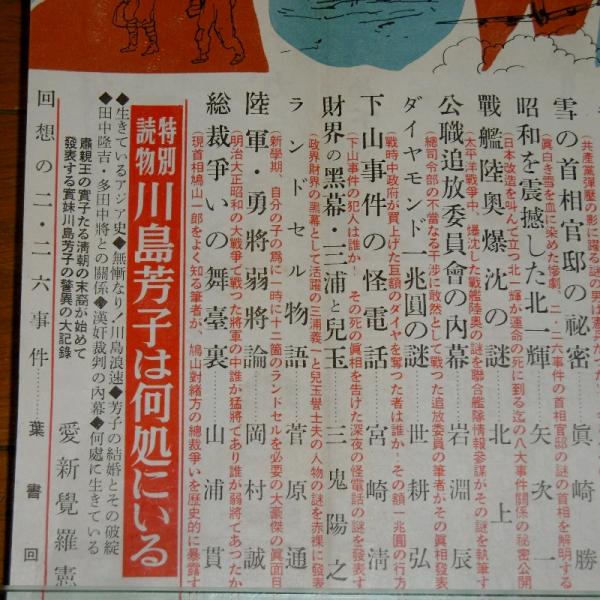 共產黨彈壓の影に躍る謎の男は
雪の首相官邸の秘密………眞崎勝
(眞白き雪を血に染めた慘劇、二・二六事件の首相官邸の謎の首相を解明する
昭和を震撼した北一輝………矢次一
(日本改造を叫んで立つ北一輝が運命の死に到る迄の八大事件関係の秘密公開
戰艦陸奥爆沈の謎………北上
(太平洋戰爭中、爆沈した戰艦陸奥の謎を聯合艦隊情報參謀がその謎を執筆す
公職追放委員會の內幕………岩淵辰
(総司令部の不當なる干渉に敢然として戰つた追放委員の筆者がその眞相發表
ダイヤモンド一兆圓の謎………世耕弘
(戰時中政府が買上げた巨額のダイヤを奪つた者は誰か!その額一兆圓の行方
下山事件の怪電話………宮崎清
(下山事件の犯人は誰か! その死の眞相を告げた深夜の怪電話の謎を發表す
財界の黑幕・三浦と兒玉………三鬼陽之
(政界財界の黑幕として活躍の三浦義一と兒玉譽士夫の人物の謎を赤裸に發表
ランドセル物語………菅原通
(新學期、自分の子の爲に一時に十一箇のランドセルを必要の大豪傑の眞面目
陸軍・勇將弱將論………岡村誠
(明治大正昭和の大戰爭で戰つた將軍の中誰が猛將であり誰が弱將であつたか
総裁爭いの舞臺裏………山浦貫
(現首相鳩山一郎をよく知る筆者が、鳩山對緒方の總裁爭いを歴史的に暴露す
特別読物 川島芳子は何処にいる
◆生きているアジア史◆無慚なり!川島浪速◆芳子の結婚とその破綻
◆田中隆吉・多田中將との關係◆漢奸裁判の內幕◆何處に生きている
肅親王の實子たる淸朝の末裔が始めて
發表する實妹川島芳子の驚異の大記錄
愛新覺羅憲
回想の二・二六事件……葉書回